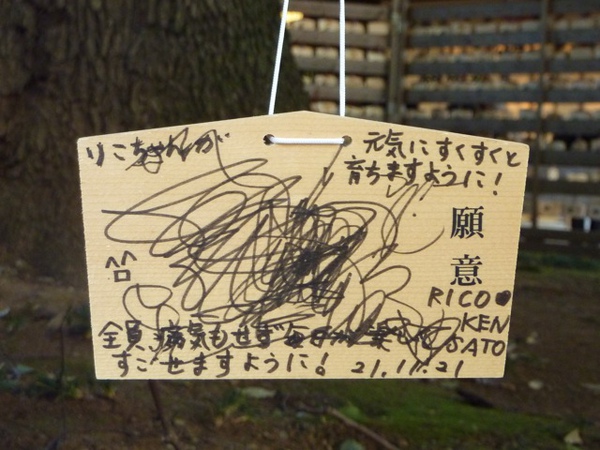 りこちゃんが
元気にすくすくと
育ちますように!
願意
RICO
KEN
SATO
全員、病気もせず毎日が楽しく
すごせますように!
21.11.21